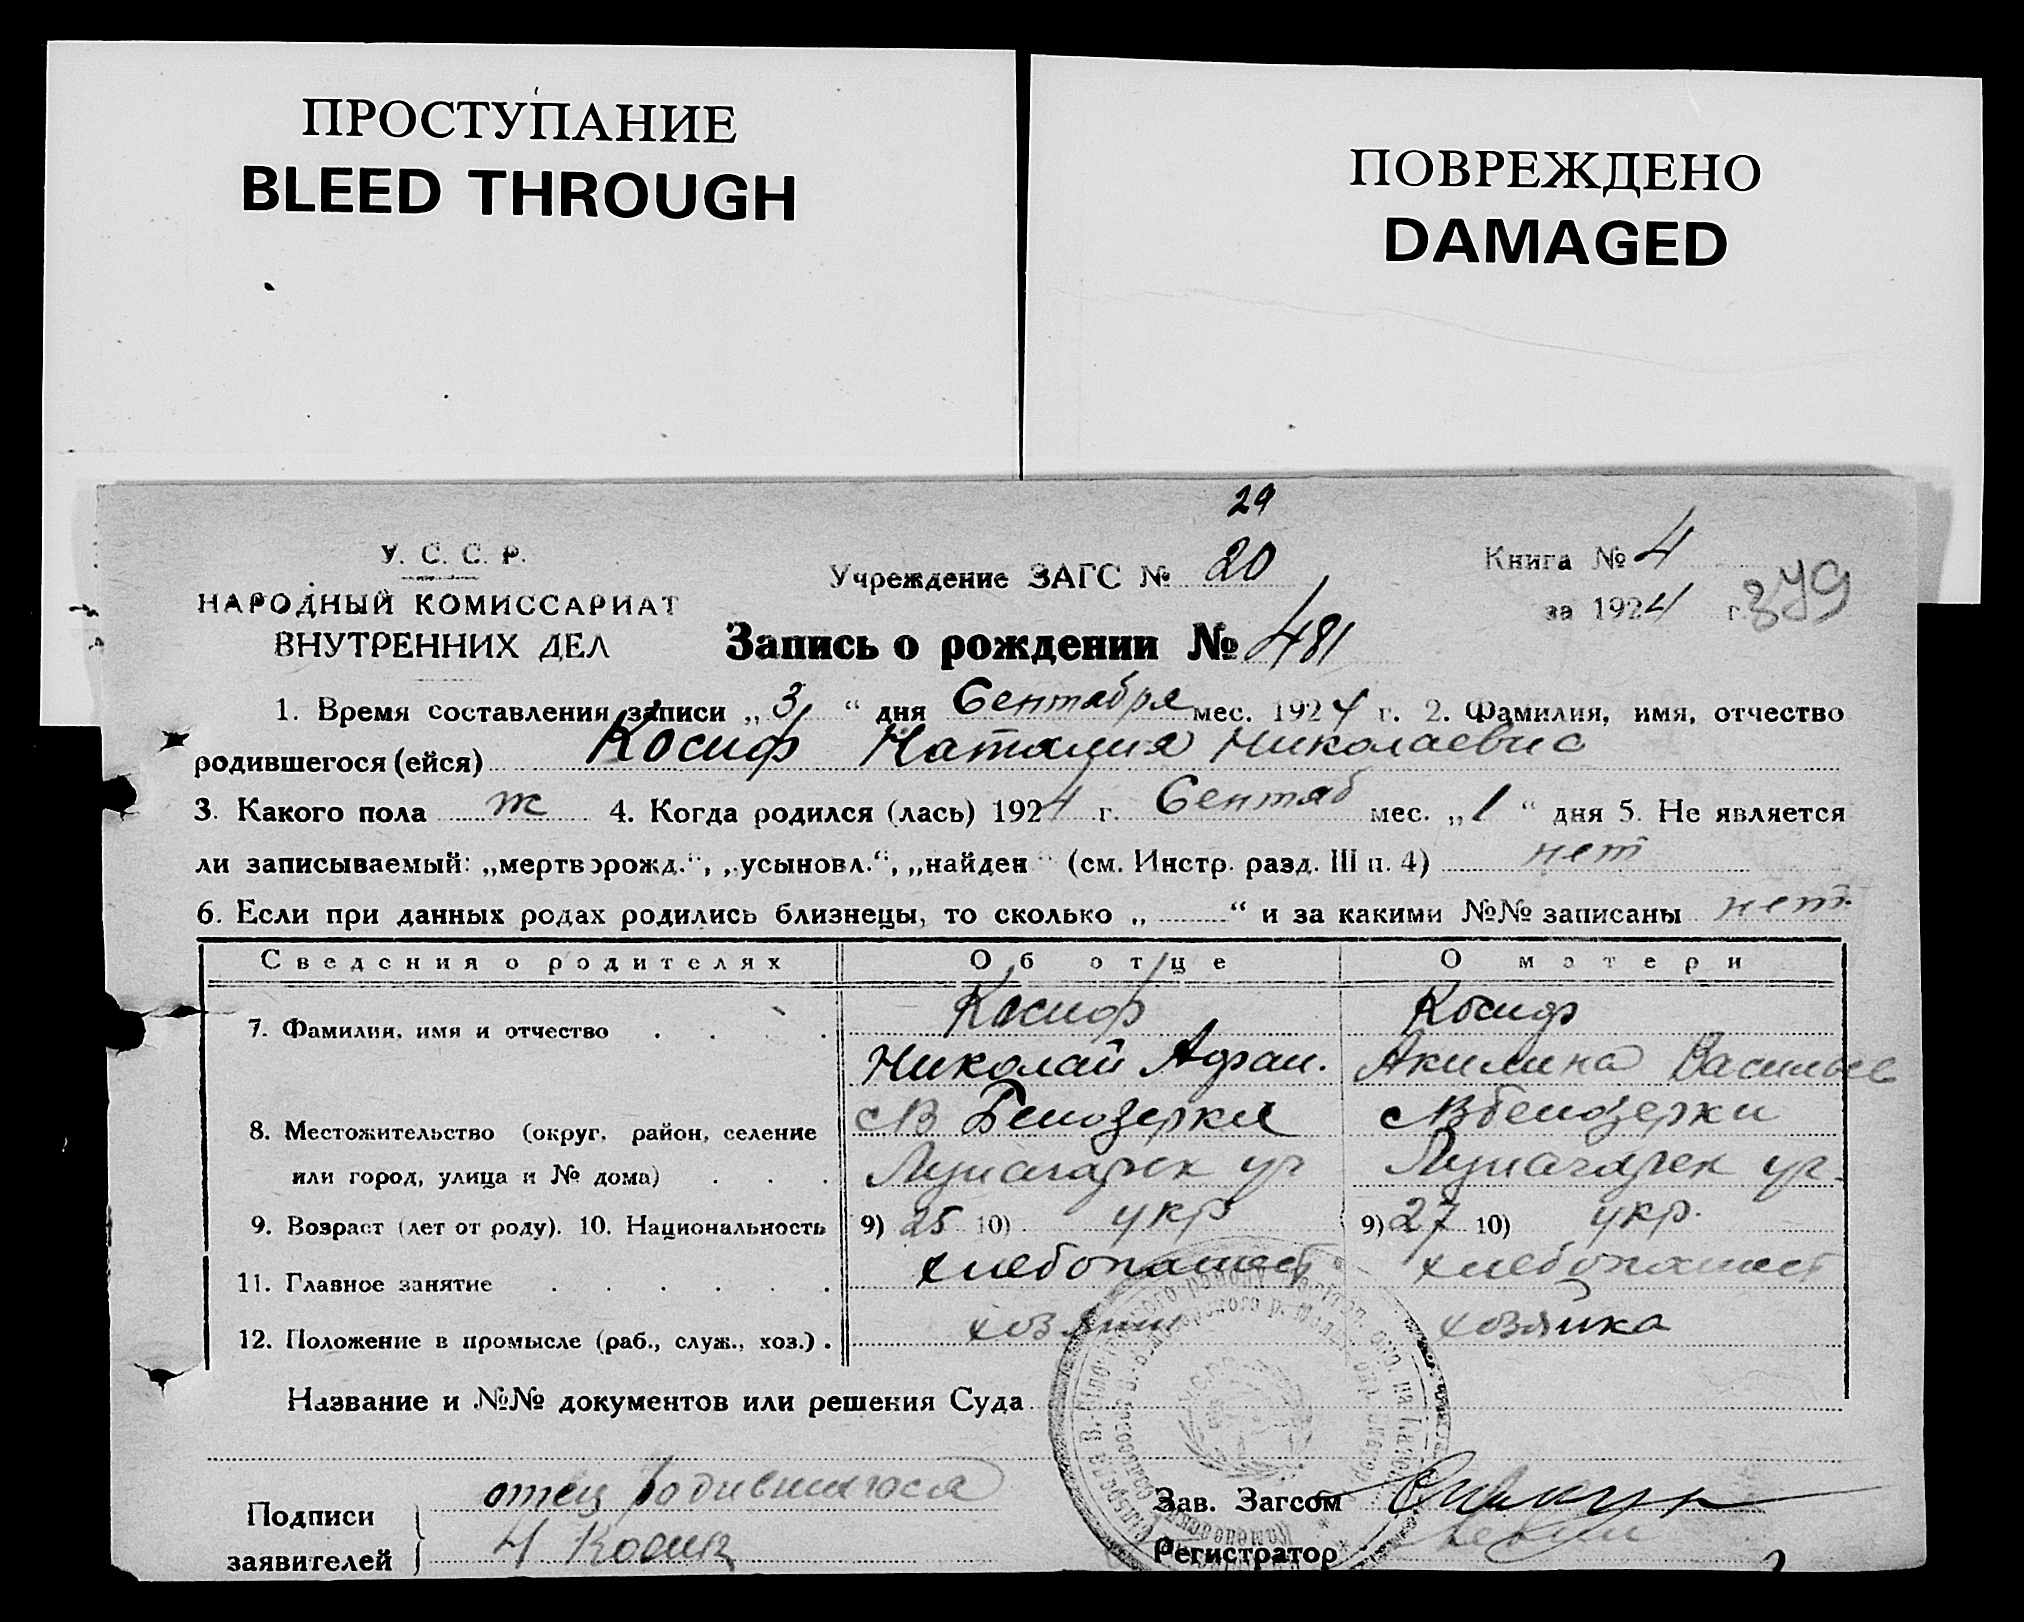 ПРОСТУПАНИЕ
BLEED THROUGH
ПОВРЕЖДЕНО
DAMAGED
29
У. С. С. Р.
НАРОДНЫЙ КОМИССАРИАТ
ВНУТРЕННИХ ДЕЛ
Учреждение ЗАГС № 20
Книга № 4
за 1924 г. 379
Запись о рождении № 481
1. Время составления записи „3“ дня Сентября мес. 1924 г. 2. Фамилия, имя, отчество
родившегося (ейся) Косиф Наталия Николаевна
3. Какого пола ж 4. Когда родился (лась) 1924 г. Сентяб мес. „1“ дня 5. Не является
ли записываемый: „мертворожд.“, „усыновл.“, „найден“ (см. Инстр. разд. III п. 4) нет
6. Если при данных родах родились близнецы, то сколько „ “ и за какими №№ записаны нет.
Сведения о родителях Об отце О матери
7. Фамилия, имя и отчество Косиф Косиф
Николай Афан. Акилина Васильев
8. Местожительство (округ, район, селение с В Белозерки с В белозерки
или город, улица и № дома) Луначарск ул Луначарск ул.
9. Возраст (лет от роду). 10. Национальность 9) 25 10) укр 9) 27 10) укр.
11. Главное занятие хлебопашест хлебопашест
12. Положение в промысле (раб., служ., хоз.) хозяин хозяйка
Название и №№ документов или решения Суда
Подписи
заявителей
отец родившегося
Н Косиф
Зав. Загсом
Регистратор